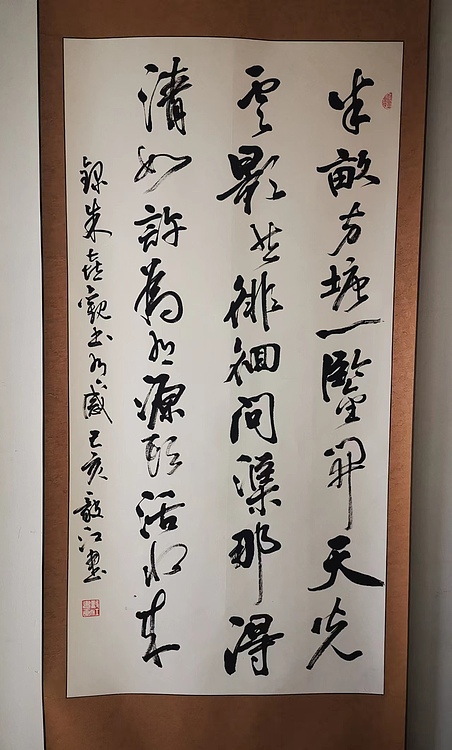 半畝方塘一鑒開天光
雲影共徘徊問渠那得
清如許為有源頭活水來
錄朱熹觀書有感己亥毅江書